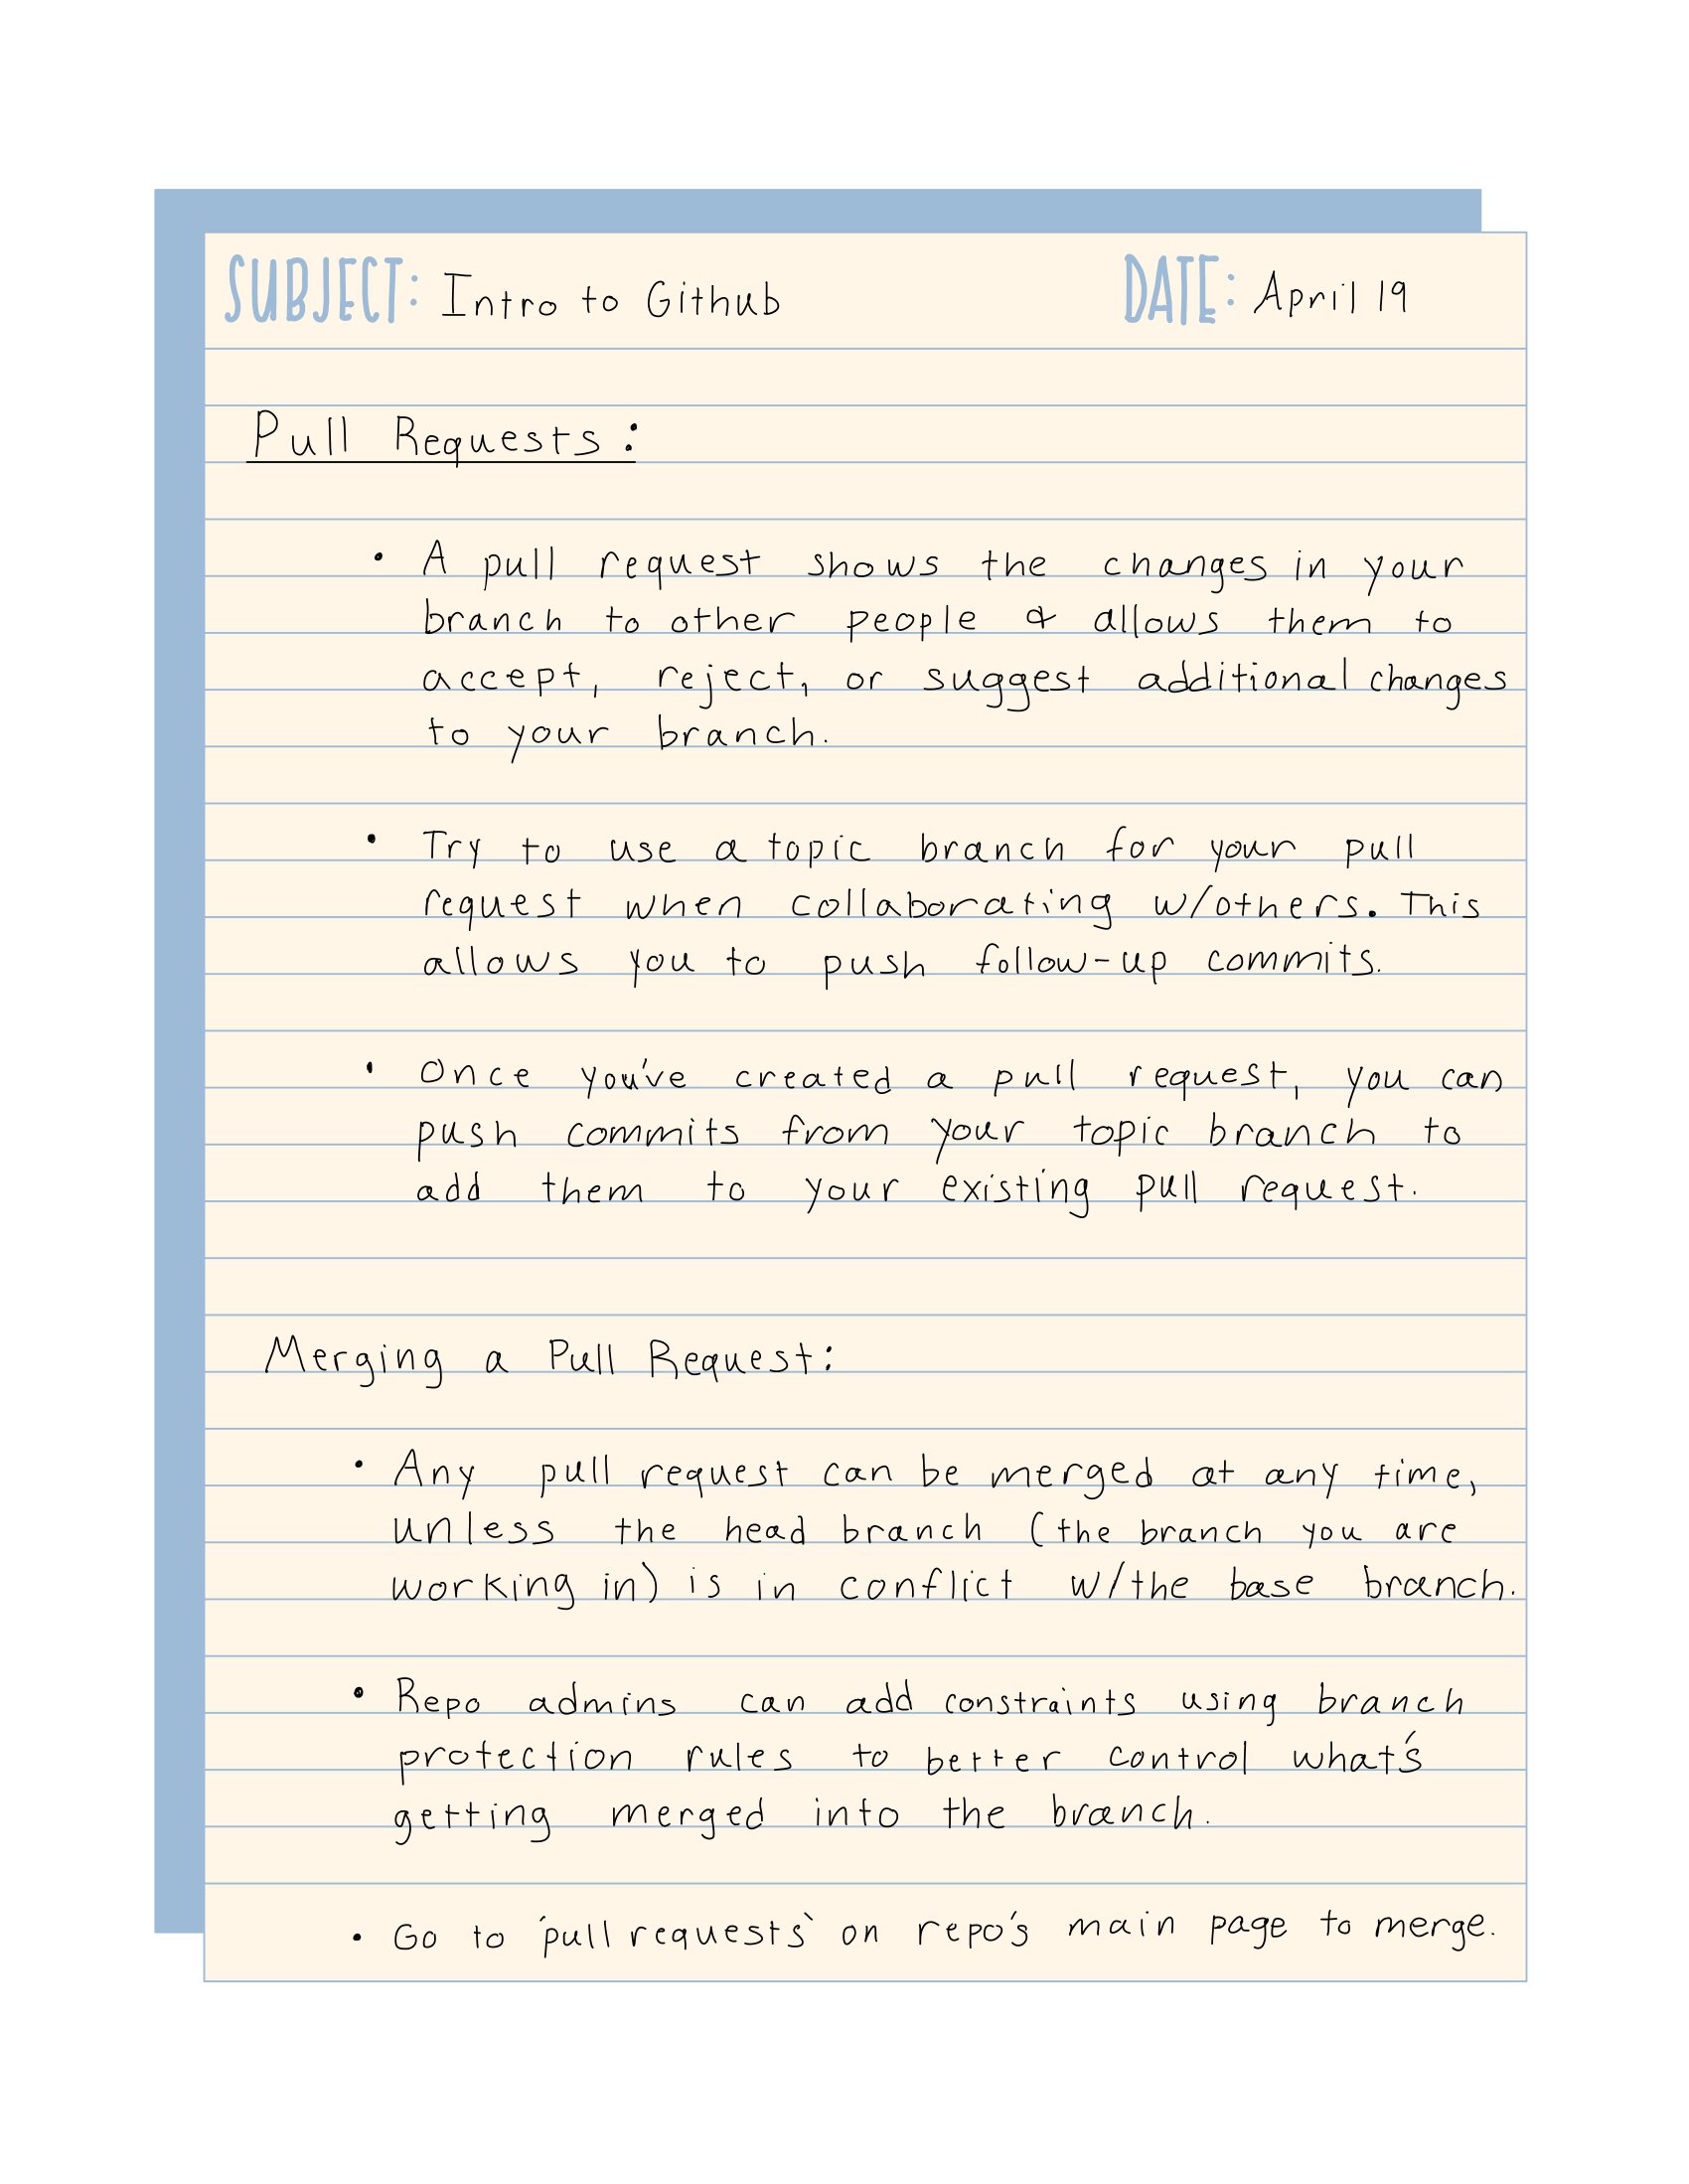 SUBJECT: Intro to Github DATE: April 19
Pull Requests:
• A pull request shows the changes in your
branch to other people & allows them to
accept, reject, or suggest additional changes
to your branch.
• Try to use a topic branch for your pull
request when collaborating w/others. This
allows you to push follow-up commits.
• Once you've created a pull request, you can
push commits from your topic branch to
add them to your existing pull request.
Merging a Pull Request:
• Any pull request can be merged at any time,
unless the head branch (the branch you are
working in) is in conflict w/the base branch.
• Repo admins can add constraints using branch
protection rules to better control what's
getting merged into the branch.
• Go to 'pull requests' on repo's main page to merge.